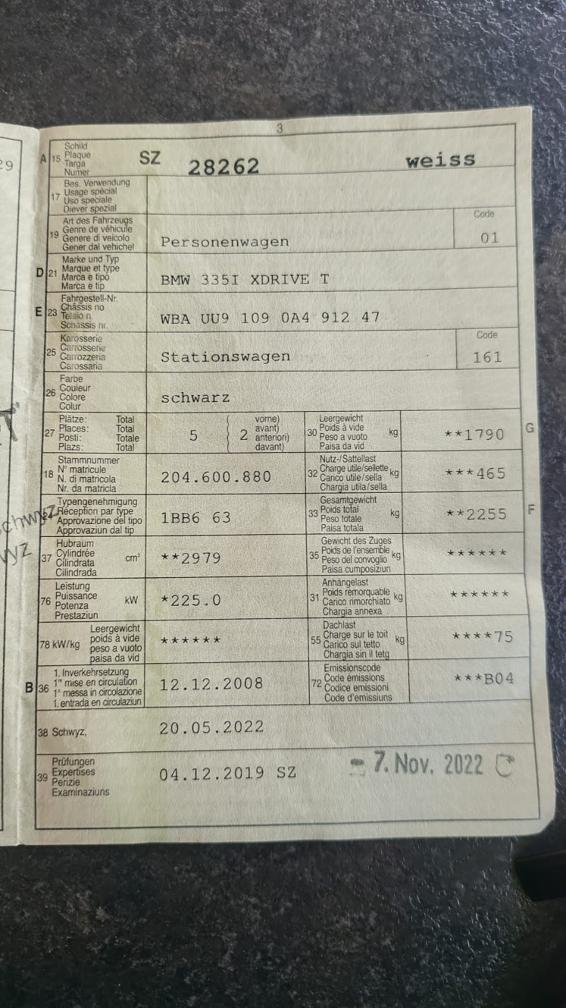 3
A 15 Schild
Plaque
Targa
Numer
SZ 28262 weiss
17 Bes. Verwendung
Usage spécial
Uso speciale
Diever spezial
19 Art des Fahrzeugs
Genre de véhicule
Genere di veicolo
Gener dal vehichel
Personenwagen
Code
01
D 21 Marke und Typ
Marque et type
Marca e tipo
Marca e tip
BMW 335I XDRIVE T
E 23 Fahrgestell-Nr.
Châssis no
Telaio n.
Schassis nr.
WBA UU9 109 0A4 912 47
25 Karosserie
Carrosserie
Carrozzeria
Carossaria
Stationswagen
Code
161
26 Farbe
Couleur
Colore
Colur
schwarz
27 Plätze: Total
Places: Total
Posti: Totale
Plazs: Total
5 ( 2 vorne)
avant)
anteriori)
davant)
30 Leergewicht
Poids à vide
Peso a vuoto
Paisa da vid
kg
**1790
G
18 Stammnummer
N° matricule
N. di matricola
Nr. da matricla
204.600.880
32 Nutz-/Sattellast
Charge utile/sellette
Carico utile/sella
Chargia utila/sella
kg
***465
Typengenehmigung
Réception par type
Approvazione del tipo
Approvaziun dal tip
1BB6 63
33 Gesamtgewicht
Poids total
Peso totale
Paisa totala
kg
**2255
F
37 Hubraum
Cylindrée
Cilindrata
Cilindrada
cm³
**2979
35 Gewicht des Zuges
Poids de l'ensemble
Peso del convoglio
Paisa cumposiziun
kg
******
76 Leistung
Puissance
Potenza
Prestaziun
kW
*225.0
31 Anhängelast
Poids remorquable
Carico rimorchiato
Chargia annexa
kg
******
78 kW/kg Leergewicht
poids à vide
peso a vuoto
paisa da vid
******
55 Dachlast
Charge sur le toit
Carico sul tetto
Chargia sin il tetg
kg
****75
B 36 1. Inverkehrsetzung
1re mise en circulation
1a messa in circolazione
1. entrada en circulaziun
12.12.2008
72 Emissionscode
Code émissions
Codice emissioni
Code d'emissiuns
***B04
38 Schwyz, 20.05.2022
39 Prüfungen
Expertises
Perizie
Examinaziuns
04.12.2019 SZ
- 7. Nov. 2022